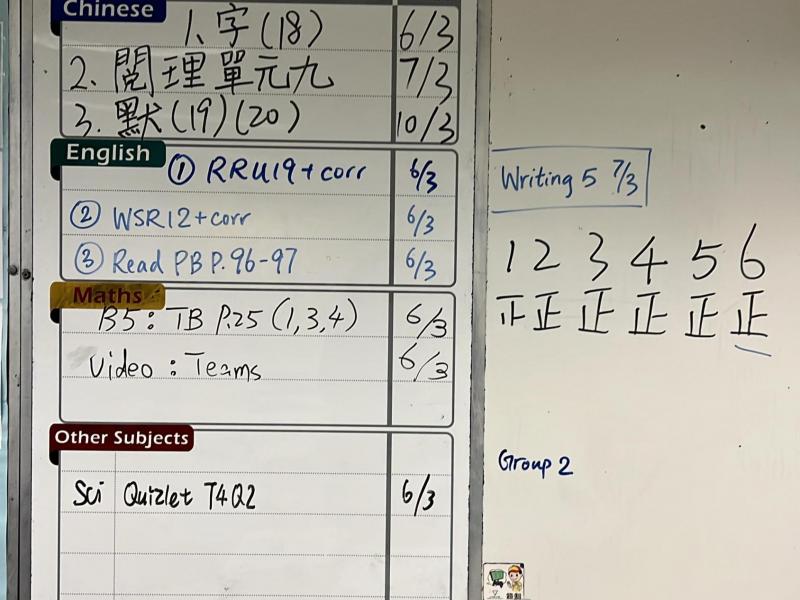 Chinese
1. 字(18) 6/3
2. 閱理單元九 7/3
3. 默(19)(20) 10/3
English
① RRU19+corr 6/3
② WSR12+corr 6/3
③ Read PB P.96-97 6/3
Maths
B5: TB P.25 (1,3,4) 6/3
Video : Teams 6/3
Other Subjects
Sci Quizlet T4Q2 6/3
Writing 5 7/3
1 2 3 4 5 6
正 正 正 正 正 正
Group 2